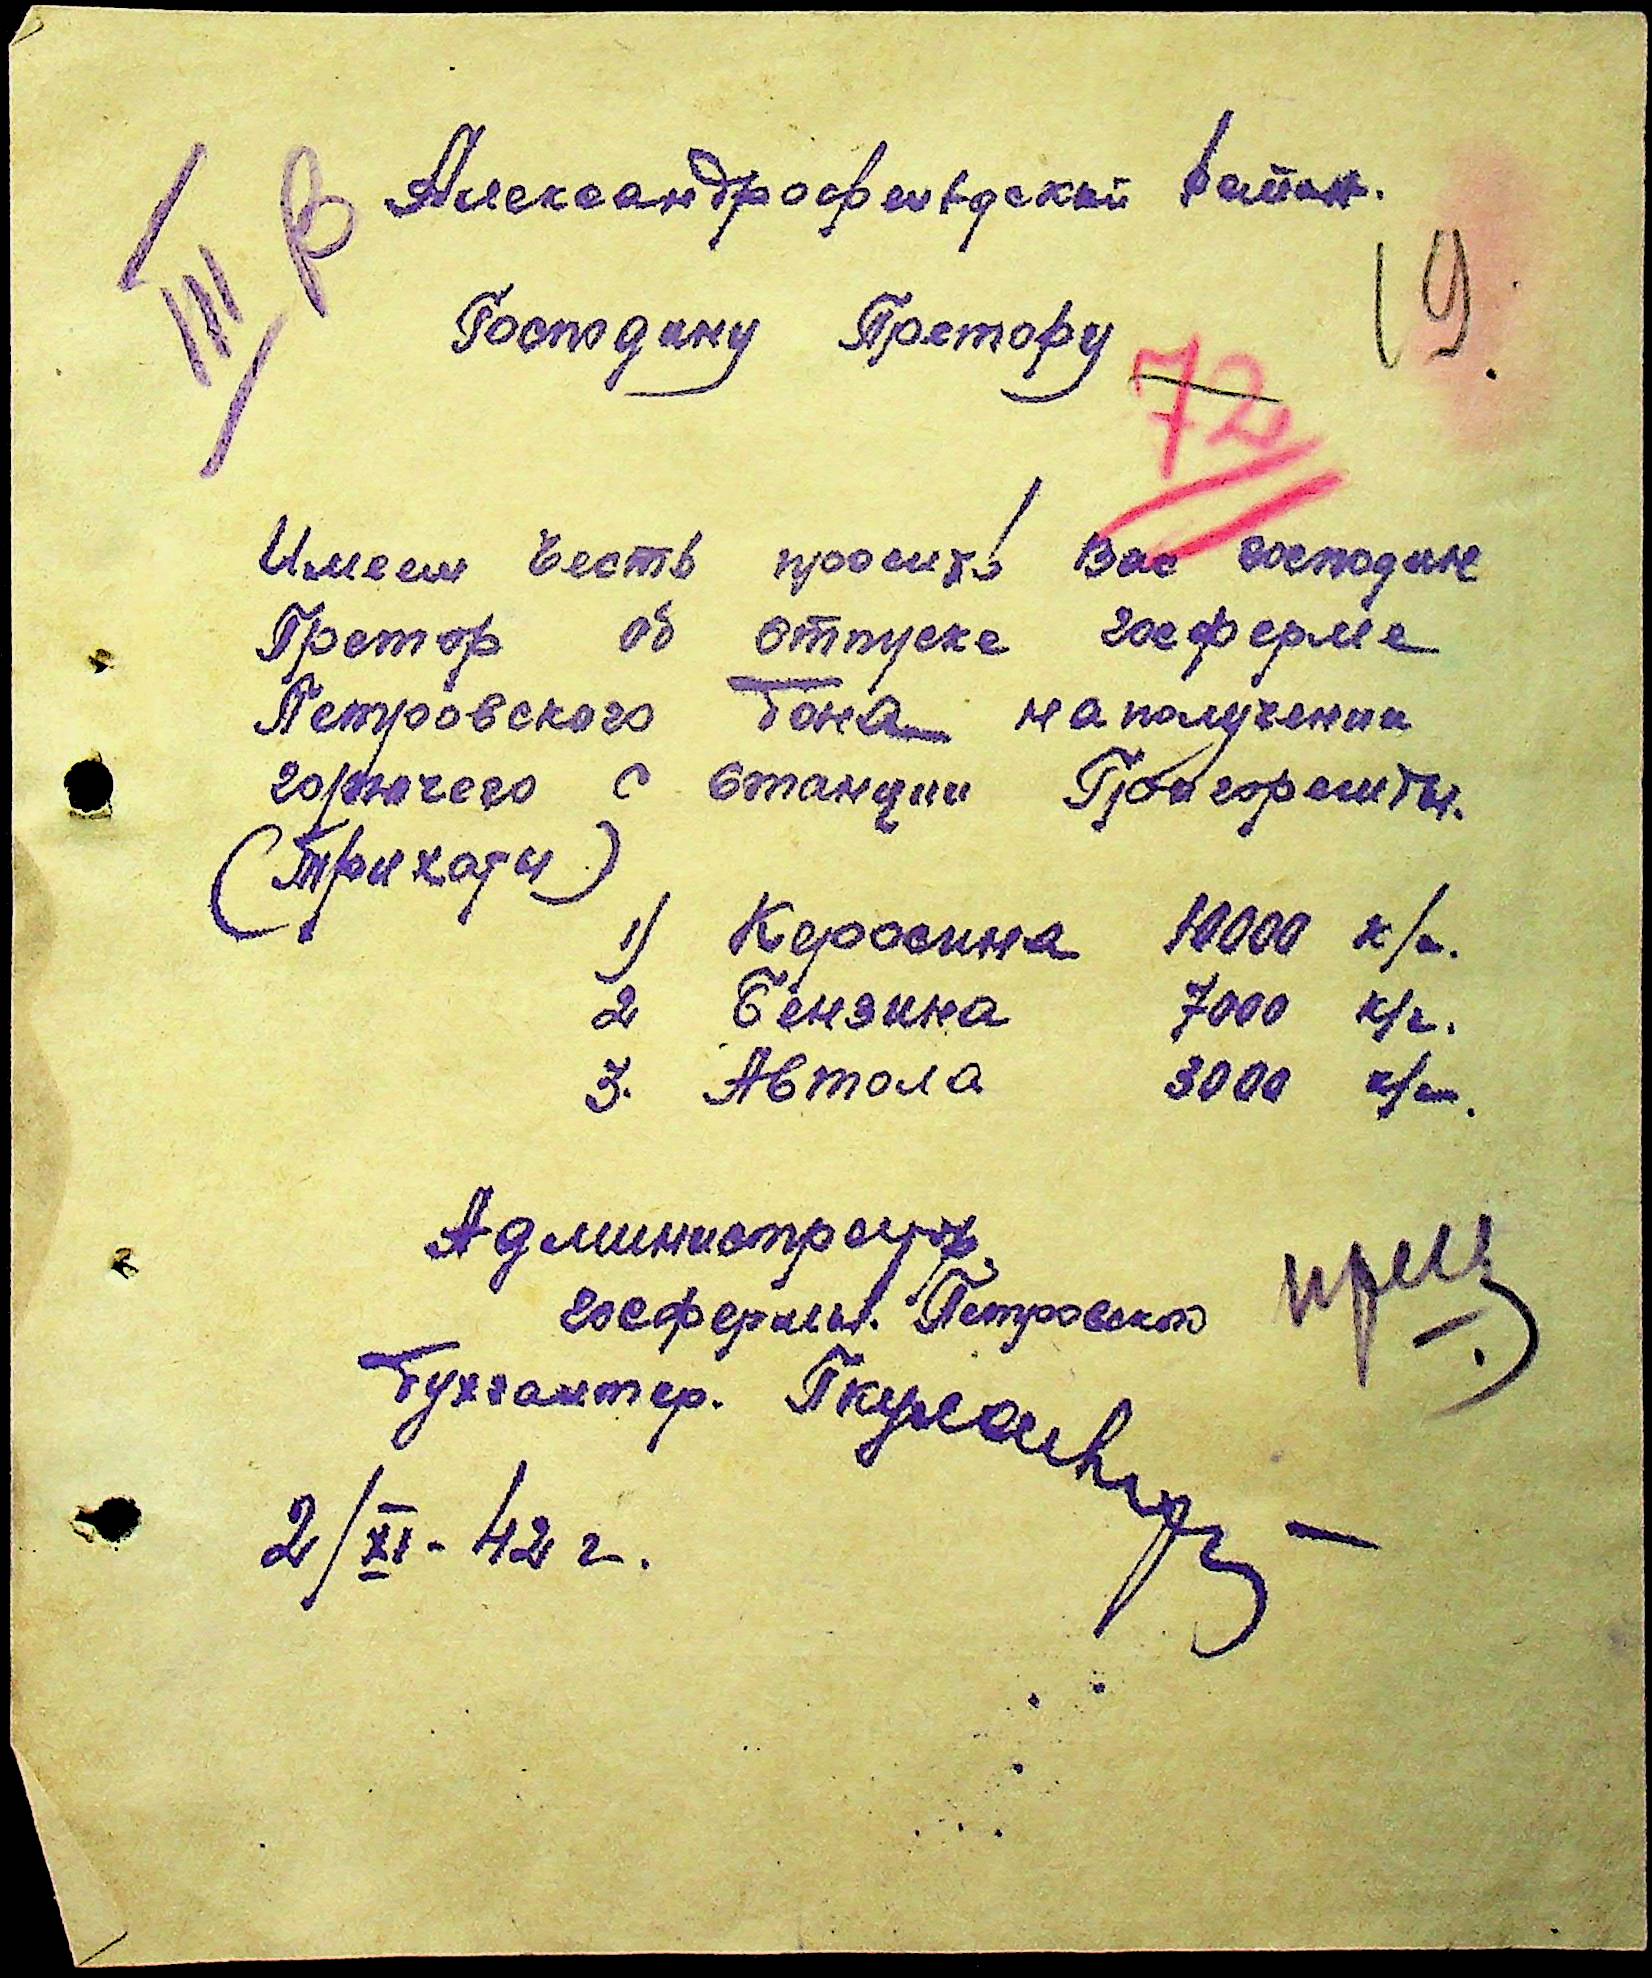 Александрофельдский район.
Господину Претору
19.
72
III В
Имеем честь просить Вас господине
Претор об отпуске госферме
Петровского бона на получении
горючего с станции Григорешты.
(Трихаты)
1) Керосина 10000 к/г.
2 Бензина 7000 к/г.
3. Автола 3000 к/г.
Администратор
госфермы. Петровского
Бухгалтер.
2/XI - 42 г.